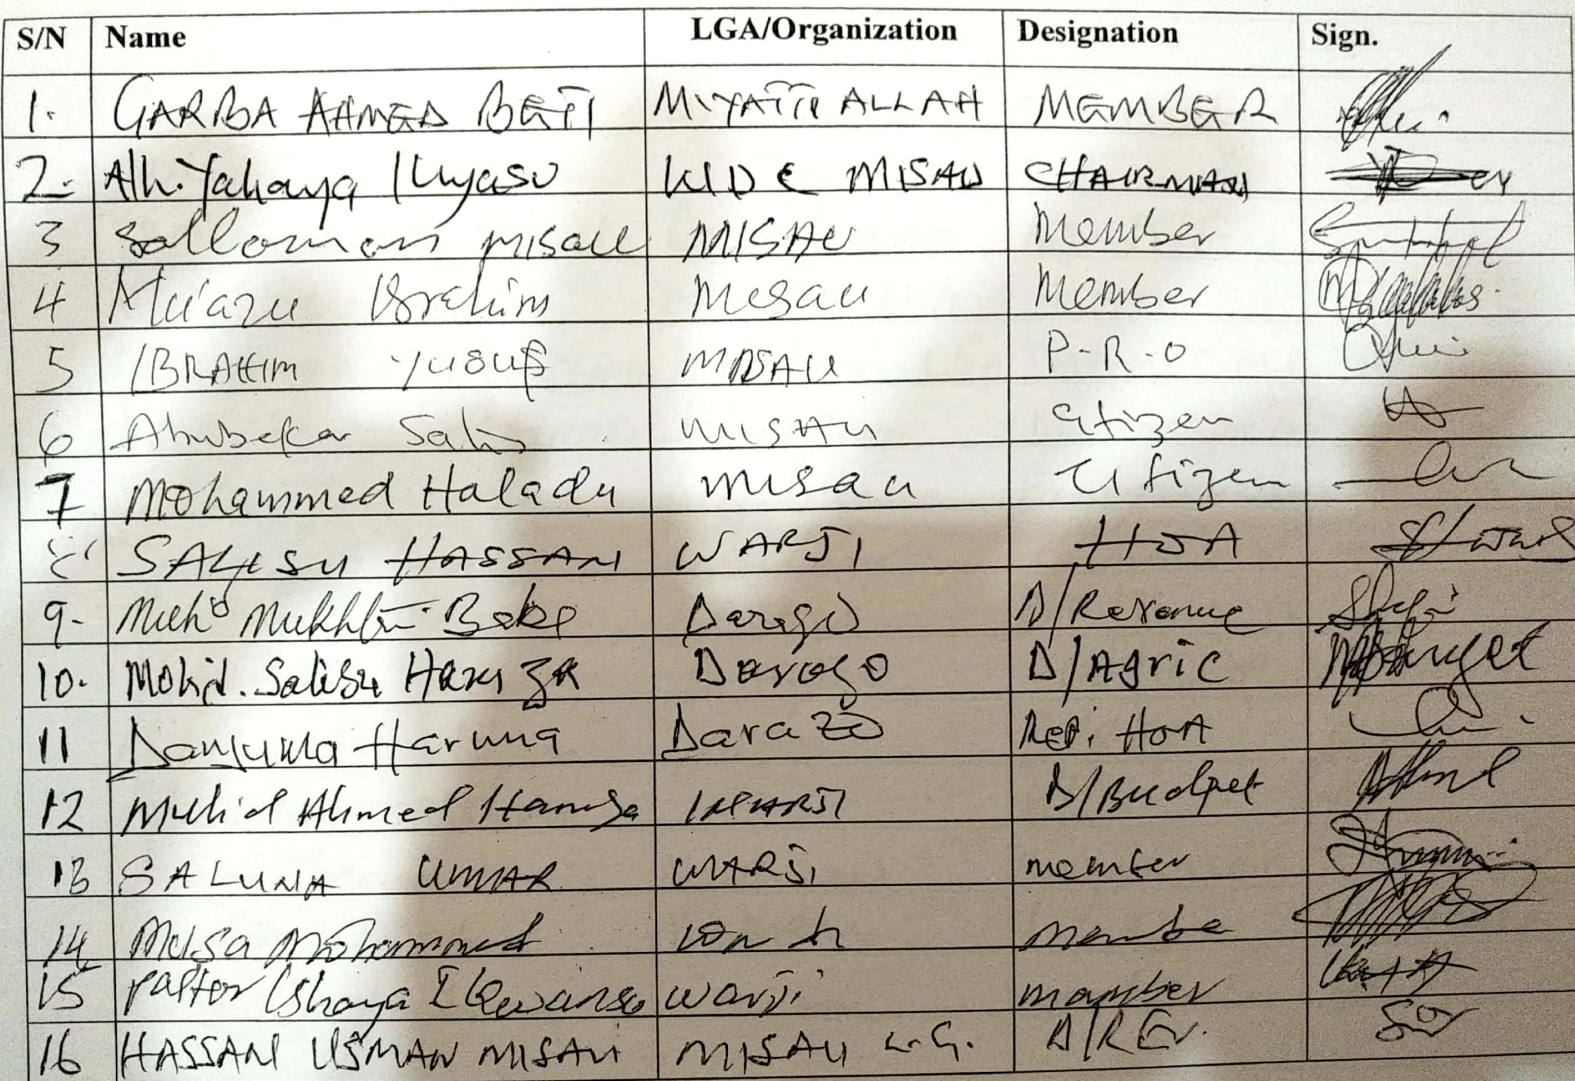 S/N Name LGA/Organization Designation Sign.
1. GARBA AHMED BETI MIYATTI ALLAH MEMBER
2. Alh. Yahaya Iliyasu MISAU CHAIRMAN
3 Sollomon misau MISAU Member
4 Mu'azu Ibrahim Misau Member
5 IBRAHIM YUSUF MISAU P.R.O
6 Abubakar Salis MISAU Citizen
7 Mohammed Haladu misau Citizen
8 SALISU HASSAN WARJI HOA
9. Muhd Mukhtar Darazo D/Revenue
10. Mohd. Salisu Darazo D/Agric
11 Danjuma Haruna Darazo Rep. HOA
12 Muh'd Ahmed Hamza WARJI D/Budget
13 SALUNA UMAR WARJI member
14 Musa Mohammed membe
15 Pastor Ishaya Warji member
16 HASSAN USMAN MISAU MISAU L.G. D/REV.